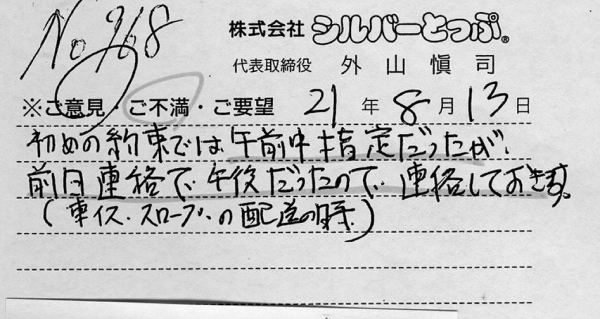 No 968
株式会社 シルバーとっぷ®
代表取締役 外山愼司
※ご意見・ご不満・ご要望 21年8月13日
初めの約束では午前中指定だったが、
前日連絡で、午後だったので、連絡しておきます。
(車イス、スロープの配送の時)